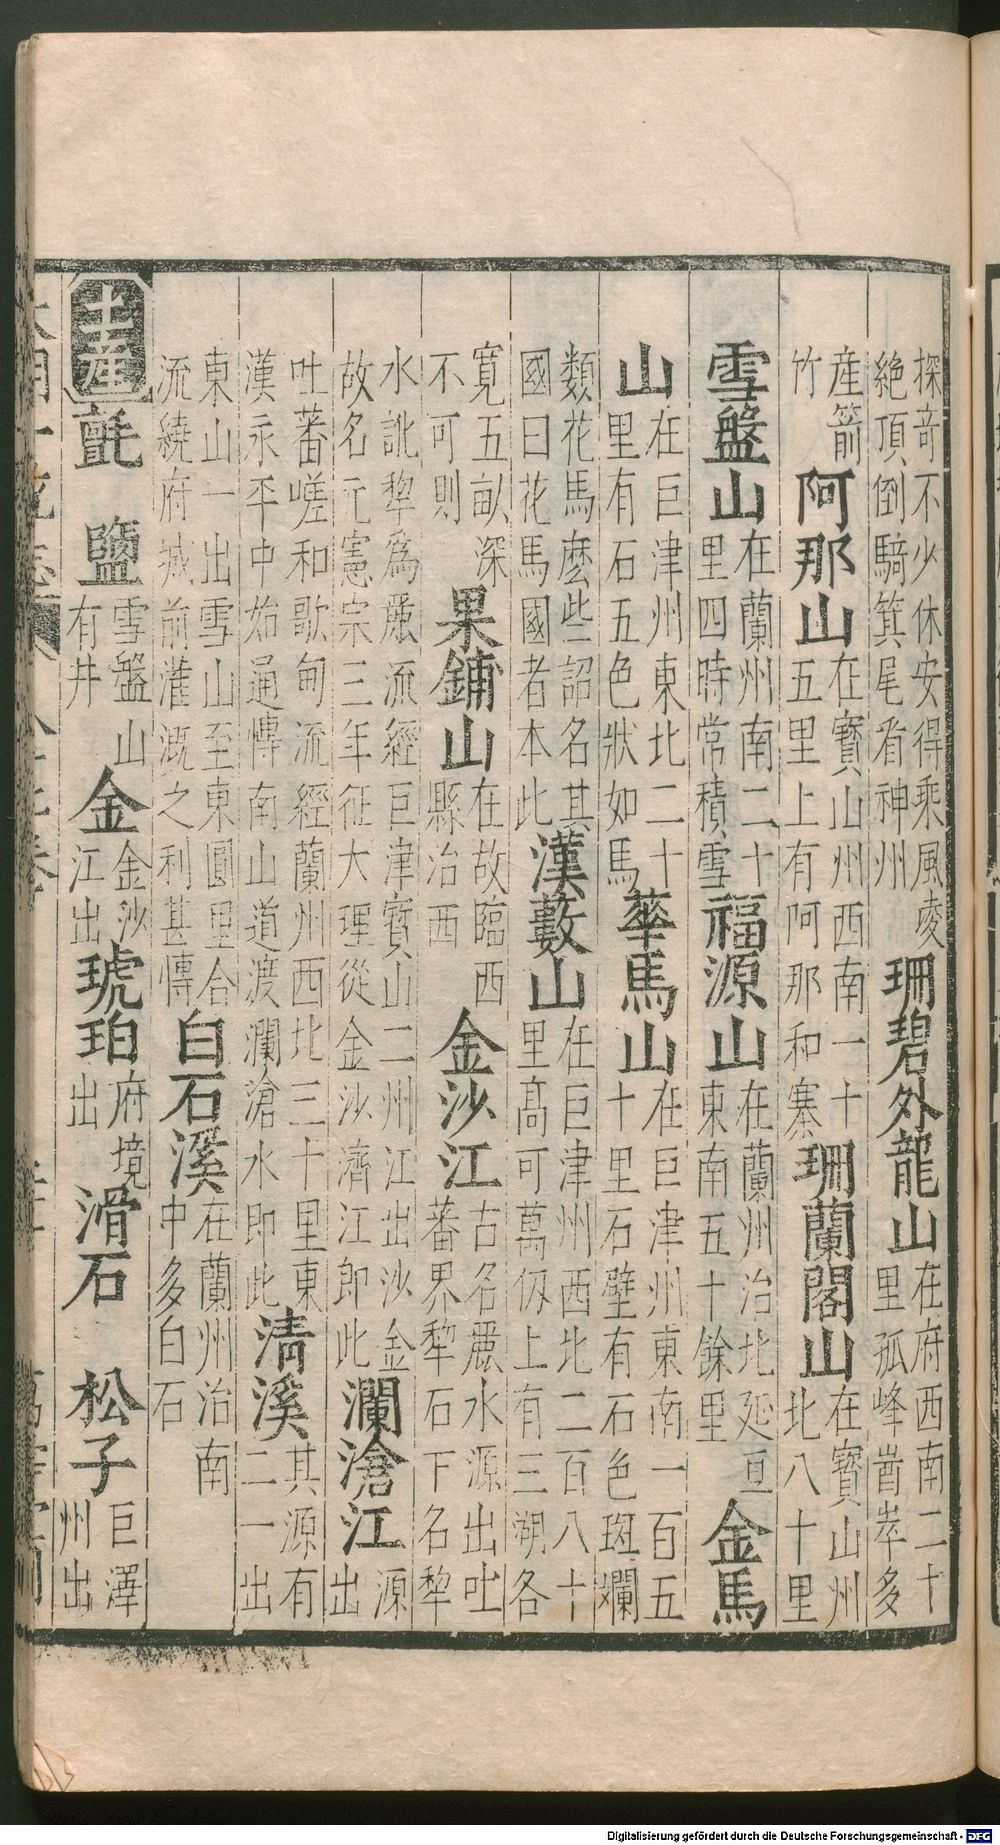 探奇不少休安得乘風凌絶頂倒騎箕尾看神州 珊碧外龍山 在府西南二十里孤峰崷崒多
產箭竹 阿那山 在寳山州西南一十五里上有阿那和寨 珊蘭閣山 在寳山州北八十里
雪盤山 在蘭州南二十里四時常積雪 福源山 在蘭州治北延亘東南五十餘里 金馬
山 在巨津州東北二十里有石五色狀如馬 華馬山 在巨津州東南一百五十里石壁有石色斑斕
類花馬麽些詔名其國曰花馬國者本此 漢藪山 在巨津州西北二百八十里高可萬仭上有三湖各
寛五畝深不可則 果鋪山 在故臨西縣治西 金沙江 古名麗水源出吐蕃界犂石下名犂
水訛犂爲麗流經巨津寳山二州江出沙金故名元憲宗三年征大理從金沙濟江即此 瀾滄江 源出
吐蕃嵯和歌甸流經蘭州西北三十里東漢永平中始通慱南山道渡瀾滄水即此 清溪 其源有二一出
東山一出雪山至東圓里合流繞府城前灌溉之利甚慱 白石溪 在蘭州治南中多白石
土產 氈 鹽 雪盤山有井 金 金沙江出 琥珀 府境出 滑石 松子 巨澤州出
Digitalisierung gefördert durch die Deutsche Forschungsgemeinschaft - DFG